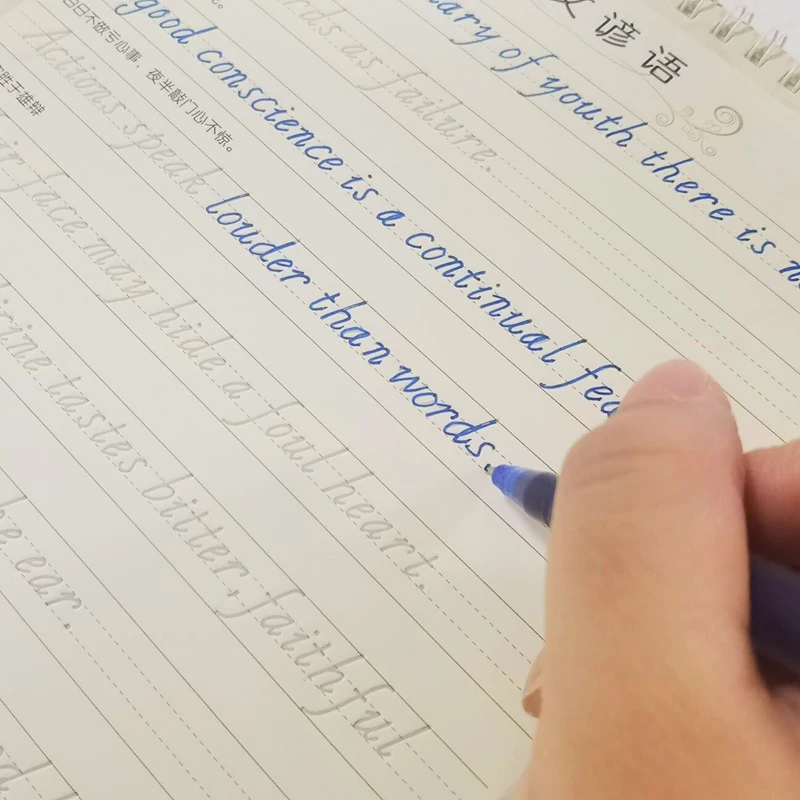 谚语
of youth there is
words as failure.
good conscience is a continual
白日不做亏心事，夜半敲门心不惊。
Actions speak louder than words
胜于雄辩
face may hide a foul heart.
tastes bitter, faithful
ear.